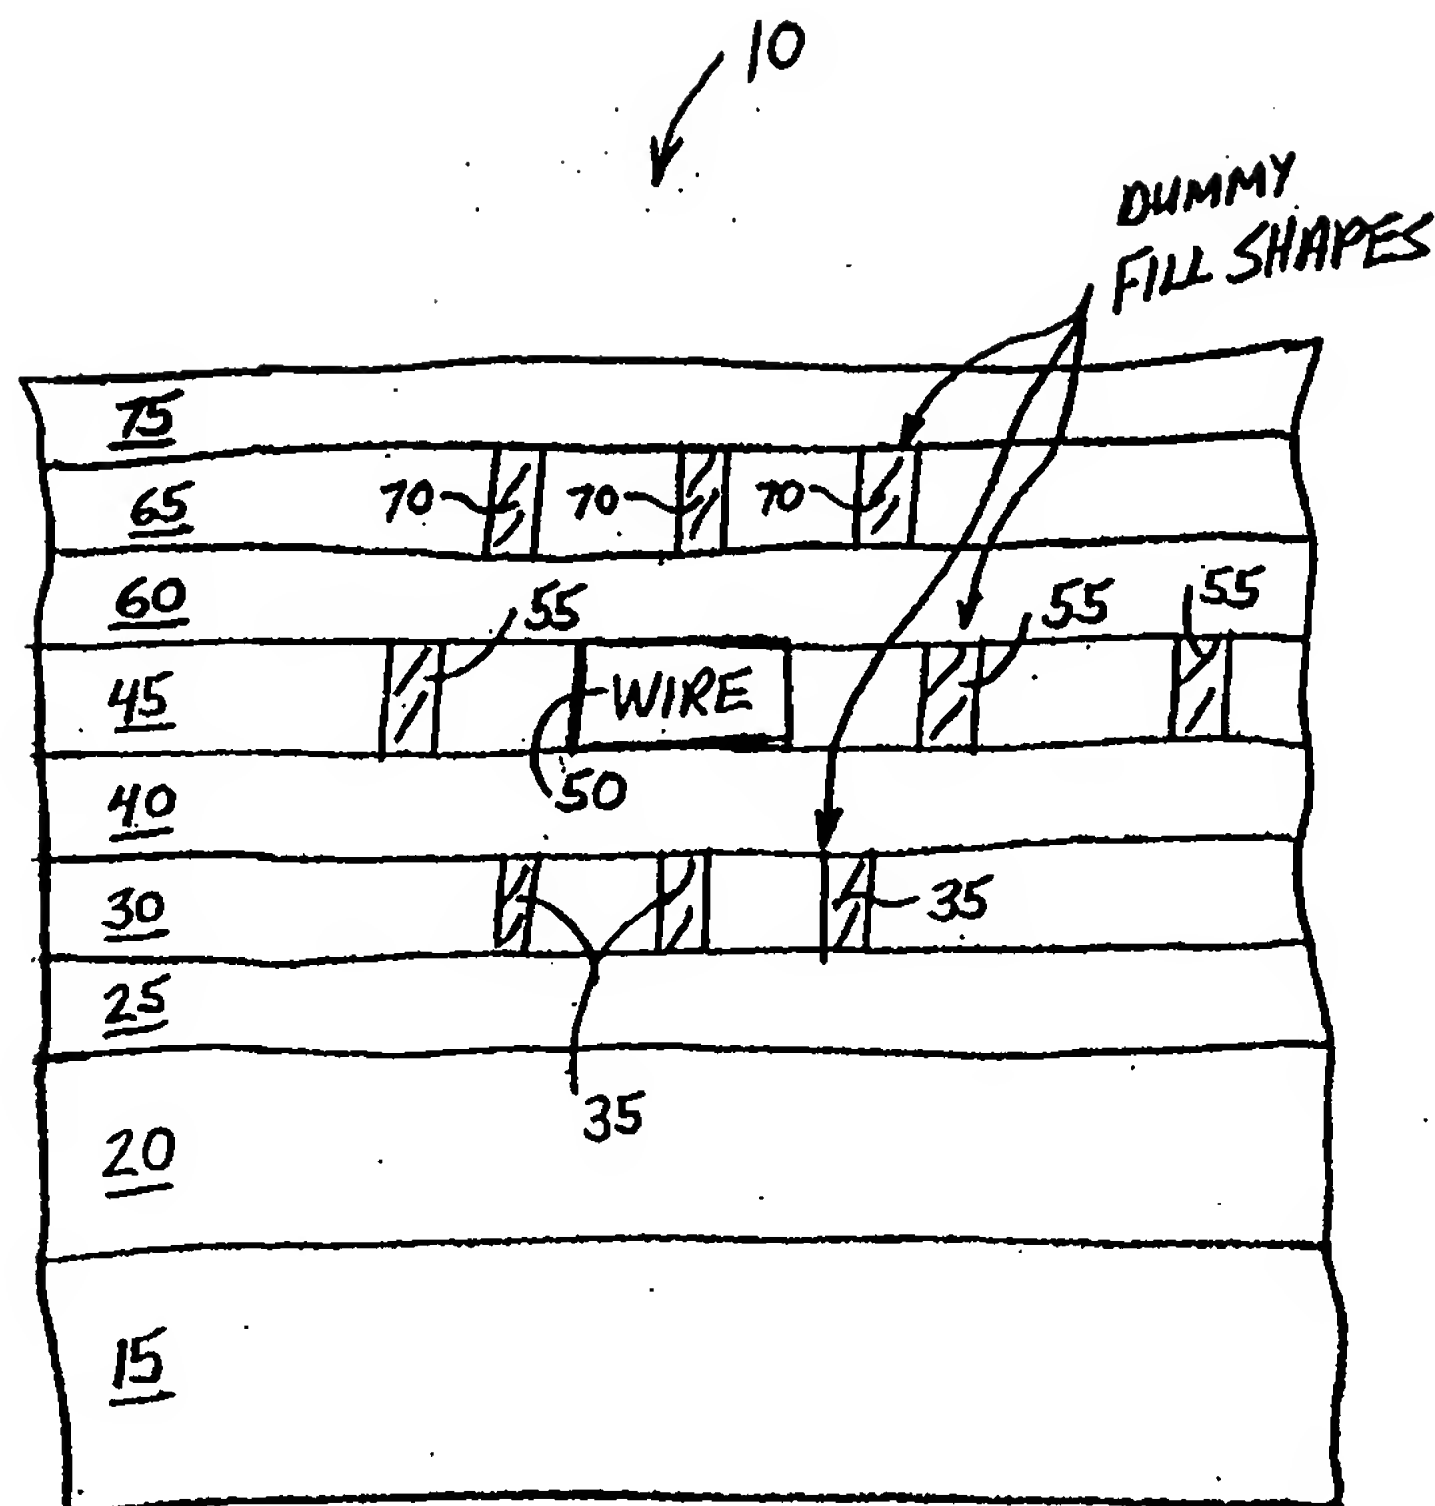 10
DUMMY
FILL SHAPES
75
65
70
70
70
60
55
55
55
45
WIRE
50
40
30
35
25
35
20
15